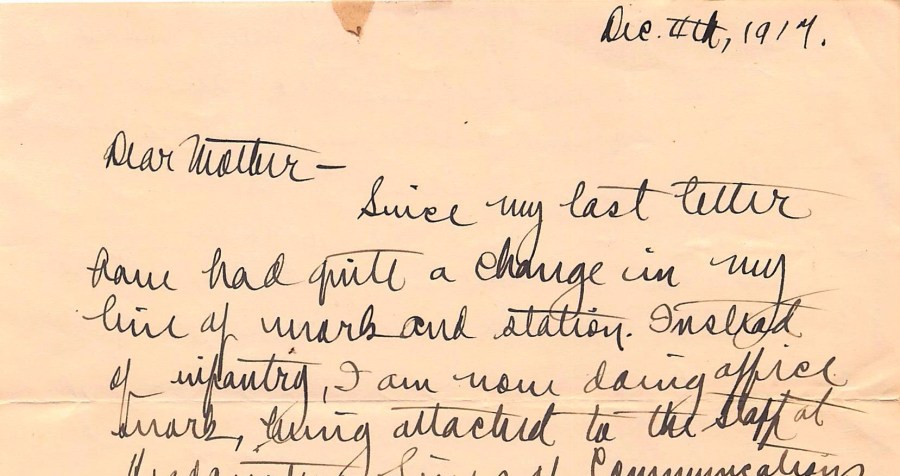 Dec. 4th, 1917.
Dear Mother –
Since my last letter
have had quite a change in my
line of work and station. Instead
of infantry, I am now doing office
work, being attached to the staff at
Headquarters Lines of Communications